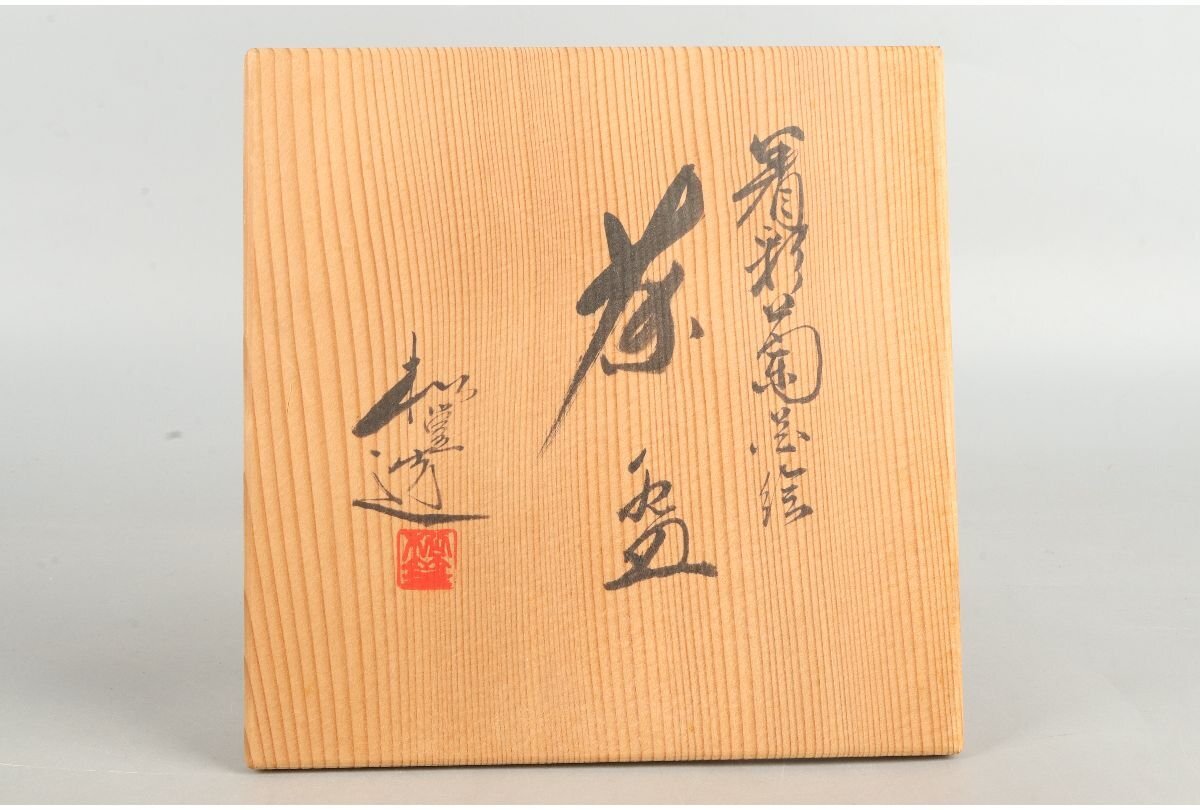 着彩菊花絵
茶盌
松堂造